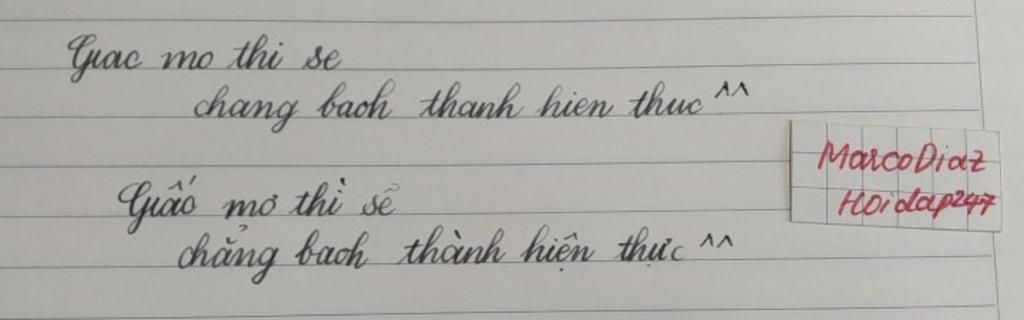 Giac mo thi se
chang baoh thanh hien thuc ^^
Giấo mơ thì sẽ
chẳng baoh thành hiện thực ^^
MarcoDiaz
Hoidap247